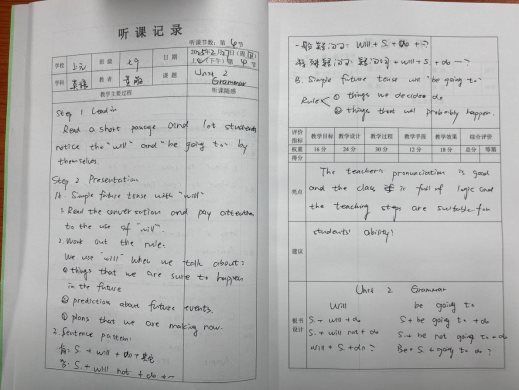 听课记录
听课节数：第 4 节
学校 班级 七 日期 2025年2月27日(周四)
上(下午) 第 节
学科 英语 教者 课题 Unit 2
Grammar
教学主要过程 听课随感
Step 1 Lead in
Read a short passage and let students
notice the "will" and "be going to" by
themselves.
Step 2 Presentation
A. Simple future tense with "will"
1. Read the conversation and pay attention
to the use of "will".
2. Work out the rule:
We use "will" when we talk about:
① things that we are sure to happen
in the future
② prediction about future events.
③ plans that we are making now.
3. Sentence pattern:
肯: S. + will + do + 其他
否: S. + will not + do + ~
一般疑问句: Will + S. + do + ?
特殊疑问句: 疑问词 + will + S. + do ~ ?
B. Simple future tense will "be going to"
Rule ① things we decided do
② things that will probably happen.
评价指标 教学目标 教学设计 教学过程 教学手段 教学效果 综合评价
权重 16 分 24 分 30 分 12 分 18 分 总分 等第
得分
亮点
The teacher's pronunciation is good
and the class is full of logic and
the teaching steps are suitable for
students' ability.
建议
板书设计
Unit 2 Grammar
Will be going to
S. + will + do S. + be going to + do
S. + will not + do S. + be not going to + do
Will + S. + do ? Be + S. + going to do ?